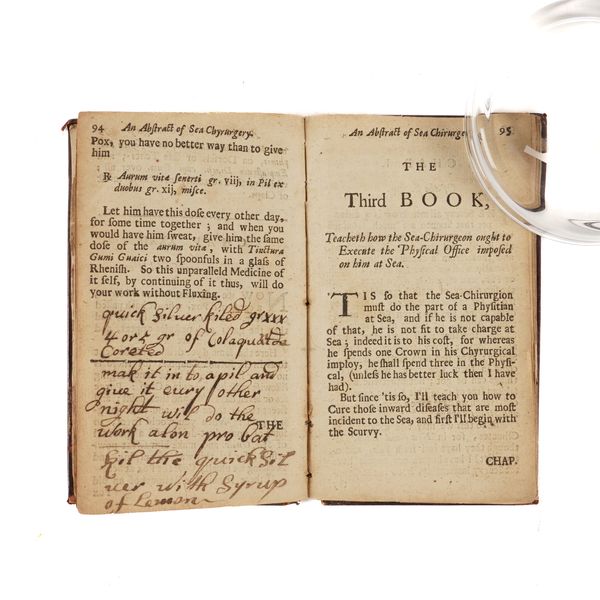 94 An Abstract of Sea Chyrurgery.
Pox, you have no better way than to give
him
℞ Aurum vitæ senerti gr. viij, in Pil ex
duobus gr. xij, misce.
Let him have this dose every other day,
for some time together ; and when you
would have him sweat, give him the same
dose of the aurum vitæ, with Tinctura
Gumi Guaici two spoonfuls in a glass of
Rhenish. So this unparalleld Medicine of
it self, by continuing of it thus, will do
your work without Fluxing.
quick Silver kiled grxxx
4 or 5 gr of Colaquatda
Corected
make it in to a pil and
give it eury other
night wil do the
work alon pro bat
THE
kil the quick Sil
uer with Syrup
of Lemon
An Abstract of Sea Chirurge 95
THE
Third BOOK,
Teacheth how the Sea-Chirurgeon ought to
Execute the Physical Office imposed
on him at Sea.
TIS so that the Sea-Chirurgion
must do the part of a Physitian
at Sea, and if he is not capable
of that, he is not fit to take charge at
Sea ; indeed it is to his cost, for whereas
he spends one Crown in his Chyrurgical
imploy, he shall spend three in the Physi-
cal, (unless he has better luck then I have
had).
But since 'tis so, I'll teach you how to
Cure those inward diseases that are most
incident to the Sea, and first I'll begin with
the Scurvy.
CHAP.